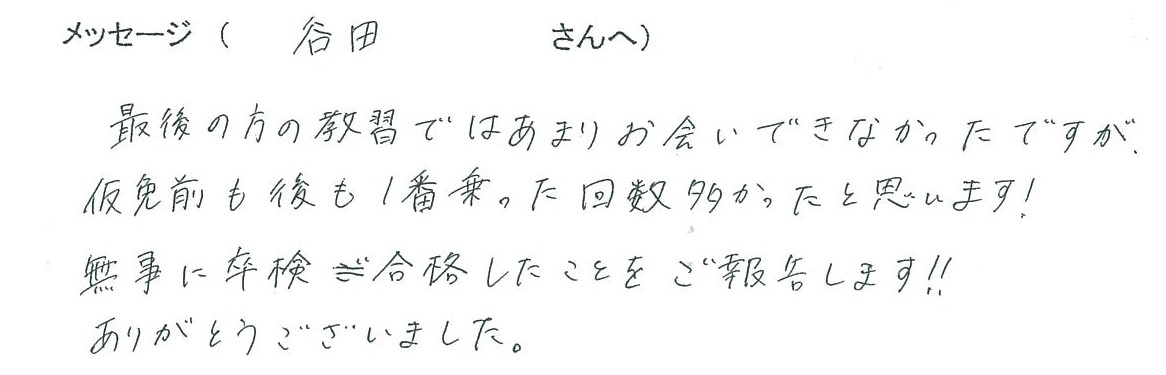 メッセージ（ 谷田 さんへ）
最後の方の教習ではあまりお会いできなかったですが、
仮免前も後も1番乗った回数多かったと思います!
無事に卒検合格したことをご報告します!!
ありがとうございました。